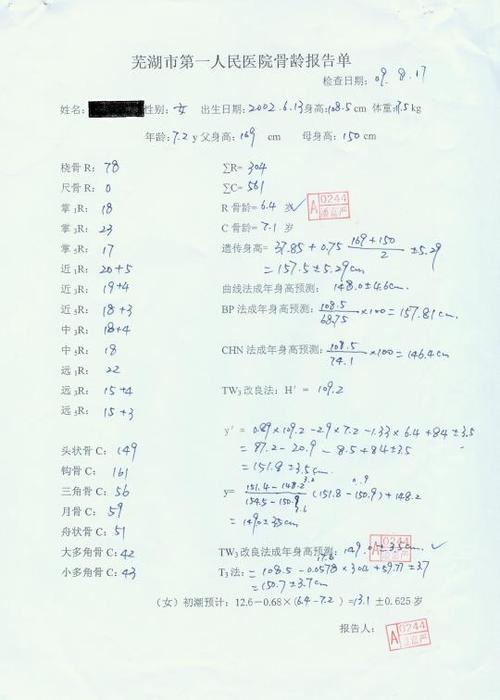 芜湖市第一人民医院骨龄报告单
检查日期: 09. 8. 17
姓名: 性别: 女 出生日期: 2002.6.13 身高: 108.5 cm 体重: kg
年龄: 7.2 y 父身高: 169 cm 母身高: 150 cm
桡骨 R: 78 ∑R= 304
尺骨 R: 0 ∑C= 561
掌₁R: 18 R 骨龄= 6.4 岁 ✓ A 0244
掌₃R: 23 C 骨龄= 7.1 岁
掌₅R: 17 遗传身高= 37.85 + 0.75 (169+150)/2 ± 5.29
近₁R: 20+5 = 157.5 ± 5.29cm
近₃R: 19+4 曲线法成年身高预测: 148.0±4.6cm.
近₅R: 18+3 BP 法成年身高预测: 108.5/68.75 ×100 = 157.81 cm.
中₃R: 18+4
中₅R: 18 CHN 法成年身高预测: 108.5/74.1 ×100 = 146.4cm
远₁R: 22
远₃R: 15+4 TW₃ 改良法: H′ = 109.2
远₅R: 15+3
y′= 0.89×109.2 -2.9×7.2 -1.33×6.4 +84 ±3.5
头状骨 C: 149 = 97.2 - 20.9 - 8.5 + 84 ± 3.5
钩骨 C: 161 = 151.8 ± 3.5cm.
三角骨 C: 56 y= (151.4-148.2)/(154.5-150.9) (151.8 - 150.9) + 148.2
月骨 C: 59
舟状骨 C: 51 = 149.0±3.5cm
大多角骨 C: 42 TW₃ 改良法成年身高预测: 149.0±3.5cm. ✓ A 0244
小多角骨 C: 43 T₃ 法: = 108.5 - 0.0578 × 304 + 59.77 ± 3.7
= 150.7 ± 3.7cm
(女) 初潮预计: 12.6-0.68×(6.4-7.2) = 13.1 ±0.625 岁
报告人: A 0244